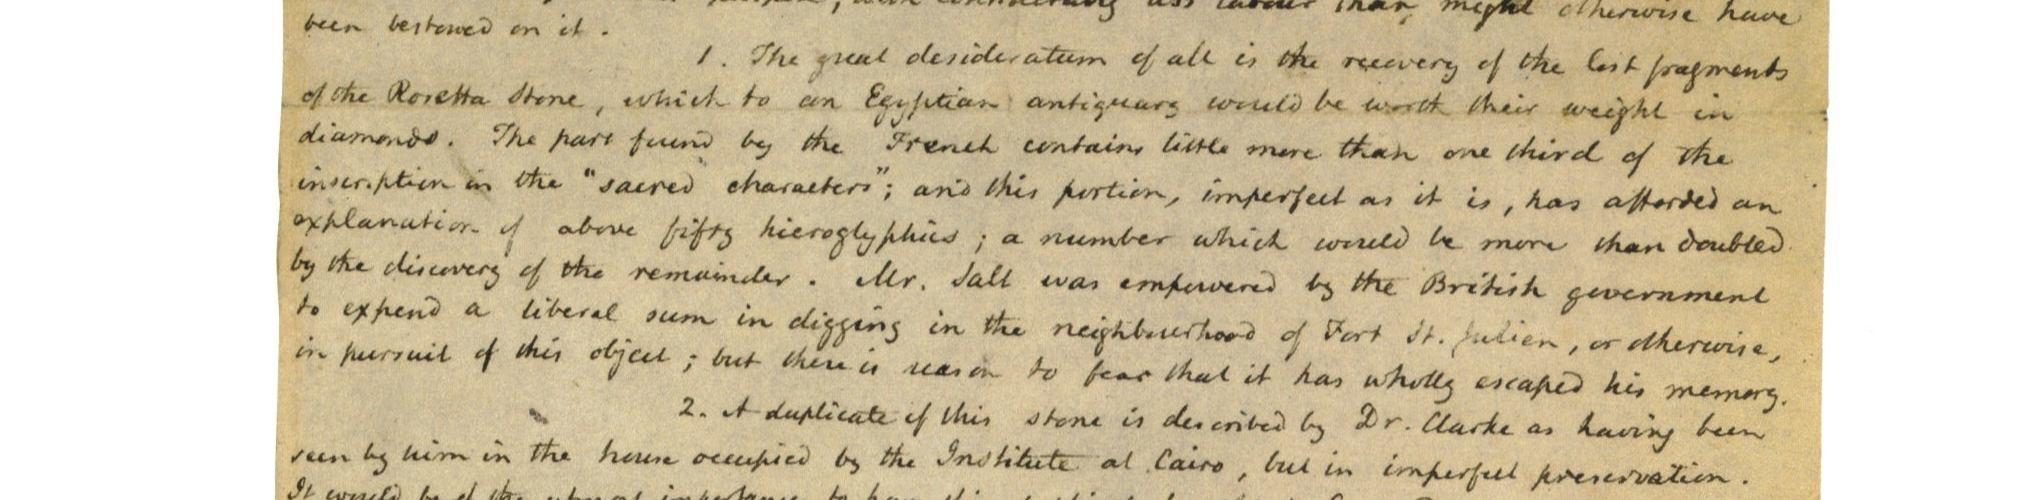 with considerably less labour than might otherwise have
been bestowed on it.
1. The great desideratum of all is the recovery of the lost fragments
of the Rosetta Stone, which to an Egyptian antiquary would be worth their weight in
diamonds. The part found by the French contains little more than one third of the
inscription in the "sacred characters"; and this portion, imperfect as it is, has afforded an
explanation of above fifty hieroglyphics; a number which would be more than doubled
by the discovery of the remainder. Mr. Salt was empowered by the British government
to expend a liberal sum in digging in the neighbourhood of Fort St. Julien, or otherwise,
in pursuit of this object; but there is reason to fear that it has wholly escaped his memory.
2. A duplicate of this stone is described by Dr. Clarke as having been
seen by him in the house occupied by the Institute at Cairo, but in imperfect preservation.
It would be of the utmost importance to have this